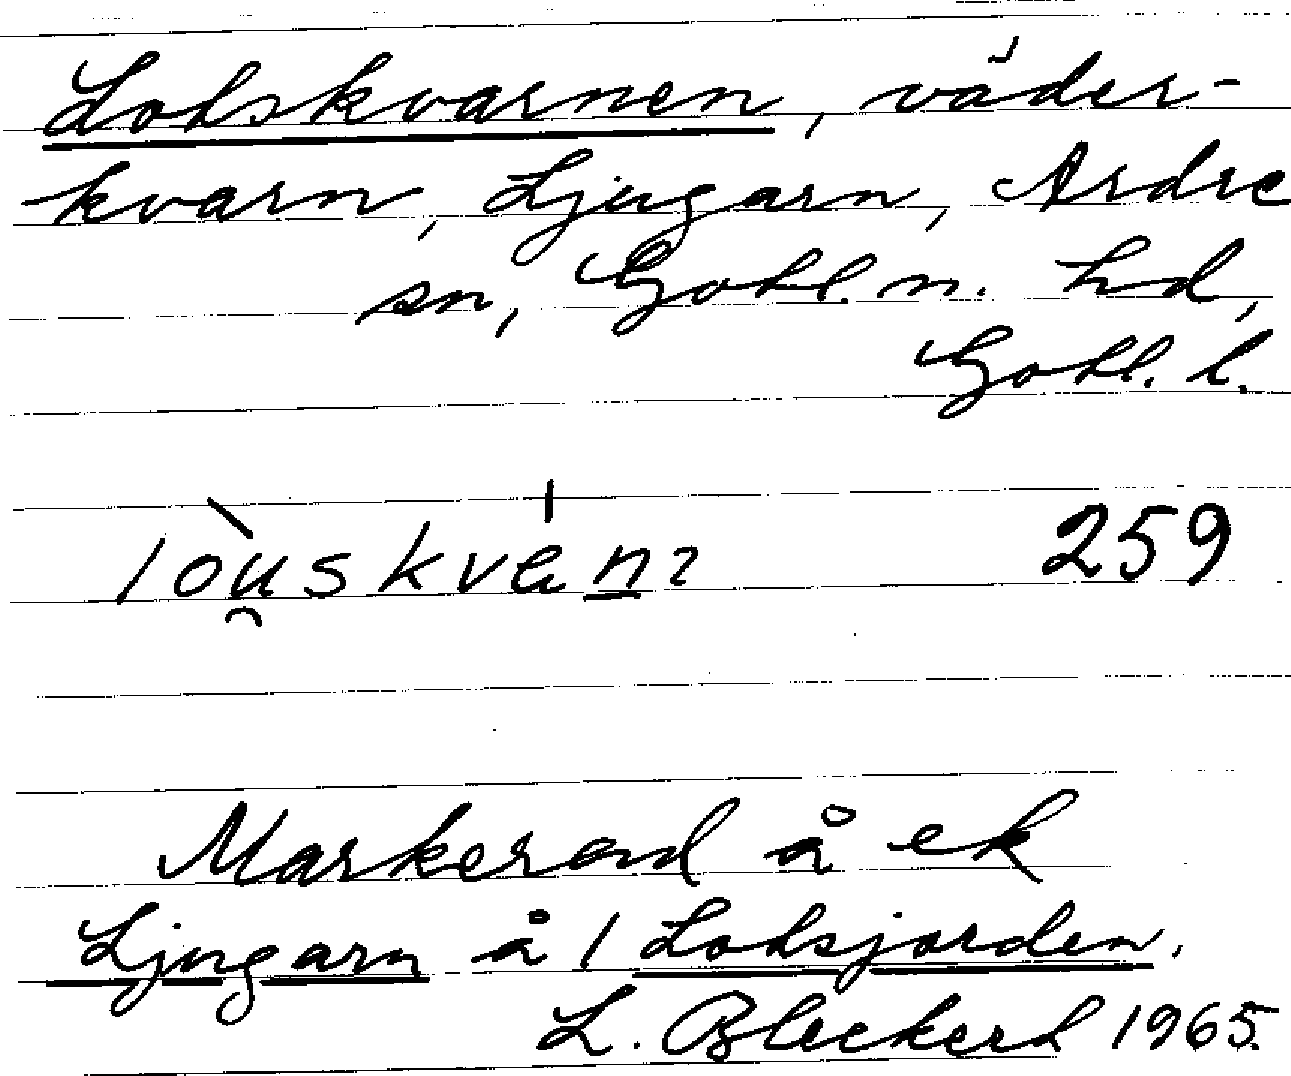 Lotskvarnen, väder-
kvarn, Ljugarn, Ardre
sn, Gotl. n. hd,
Gotl. l.
lòu̯skvɐ́n̲ɂ 259
Markerad å ek
Ljugarn å 1 Lotsjorden.
L. Bleckert 1965.